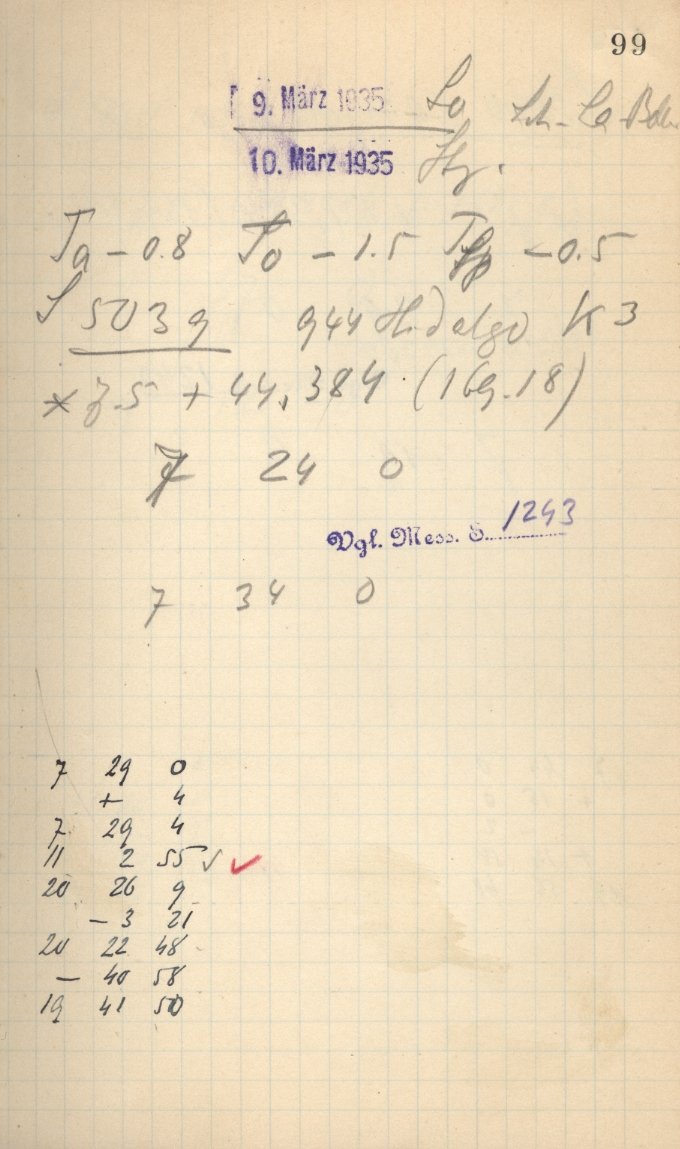 99
9. März 1935 So
10. März 1935
Ta - 0.8 To - 1.5 - 0.5
S 503 g 944 Hidalgo K 3
* 7.5 + 44, 384 (169.18)
7 24 0
Vgl. Mess. S. 1243
7 34 0
7 29 0
+ 4
7 29 4
11 2 55 √ ✓
20 26 9
- 3 21
20 22 48
- 40 58
19 41 50